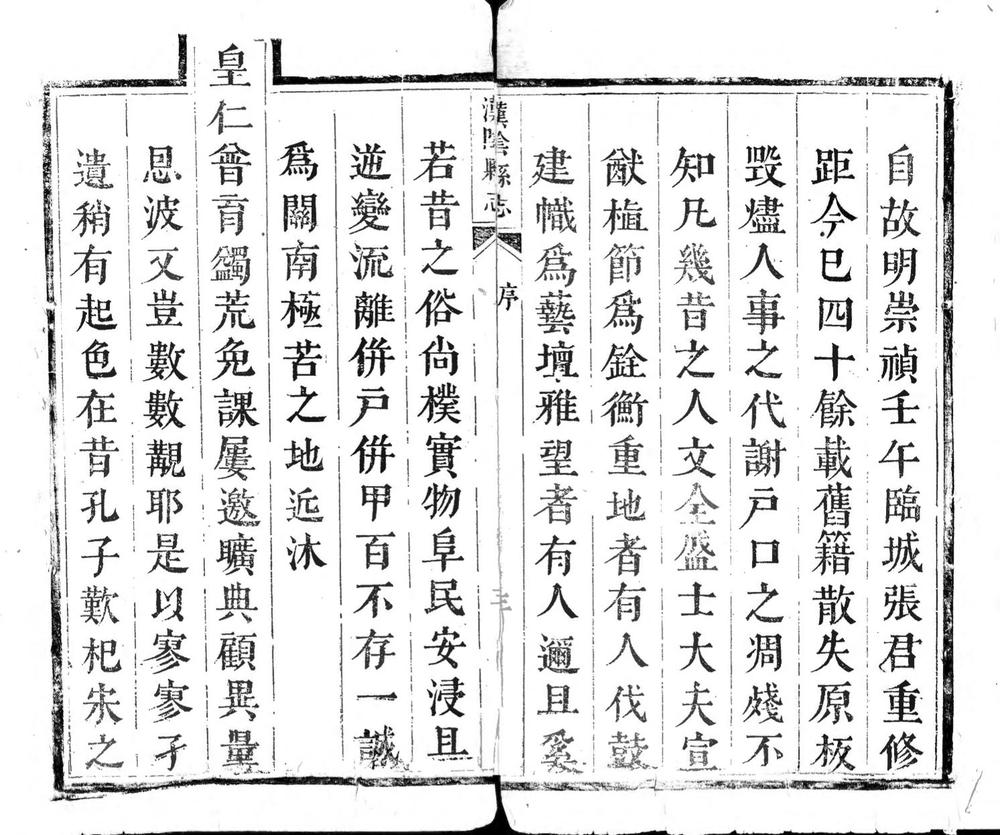 自故明崇禎壬午臨城張君重修
距今已四十餘載舊籍散失原板
毀燼人事之代謝戶口之凋殘不
知凡幾昔之人文全盛士大夫宣
猷植節爲銓衡重地者有人伐鼓
建幟爲藝壇雅望者有人邇且奚
漢陰縣志
序
三
若昔之俗尚樸實物阜民安浸且
逆變流離併戸併甲百不存一誠
爲關南極苦之地近沐
皇仁曾育蠲荒免課屢邀曠典顧異量
恩波又豈數數覯耶是以寥寥孑
遺稍有起色在昔孔子歎杞宋之